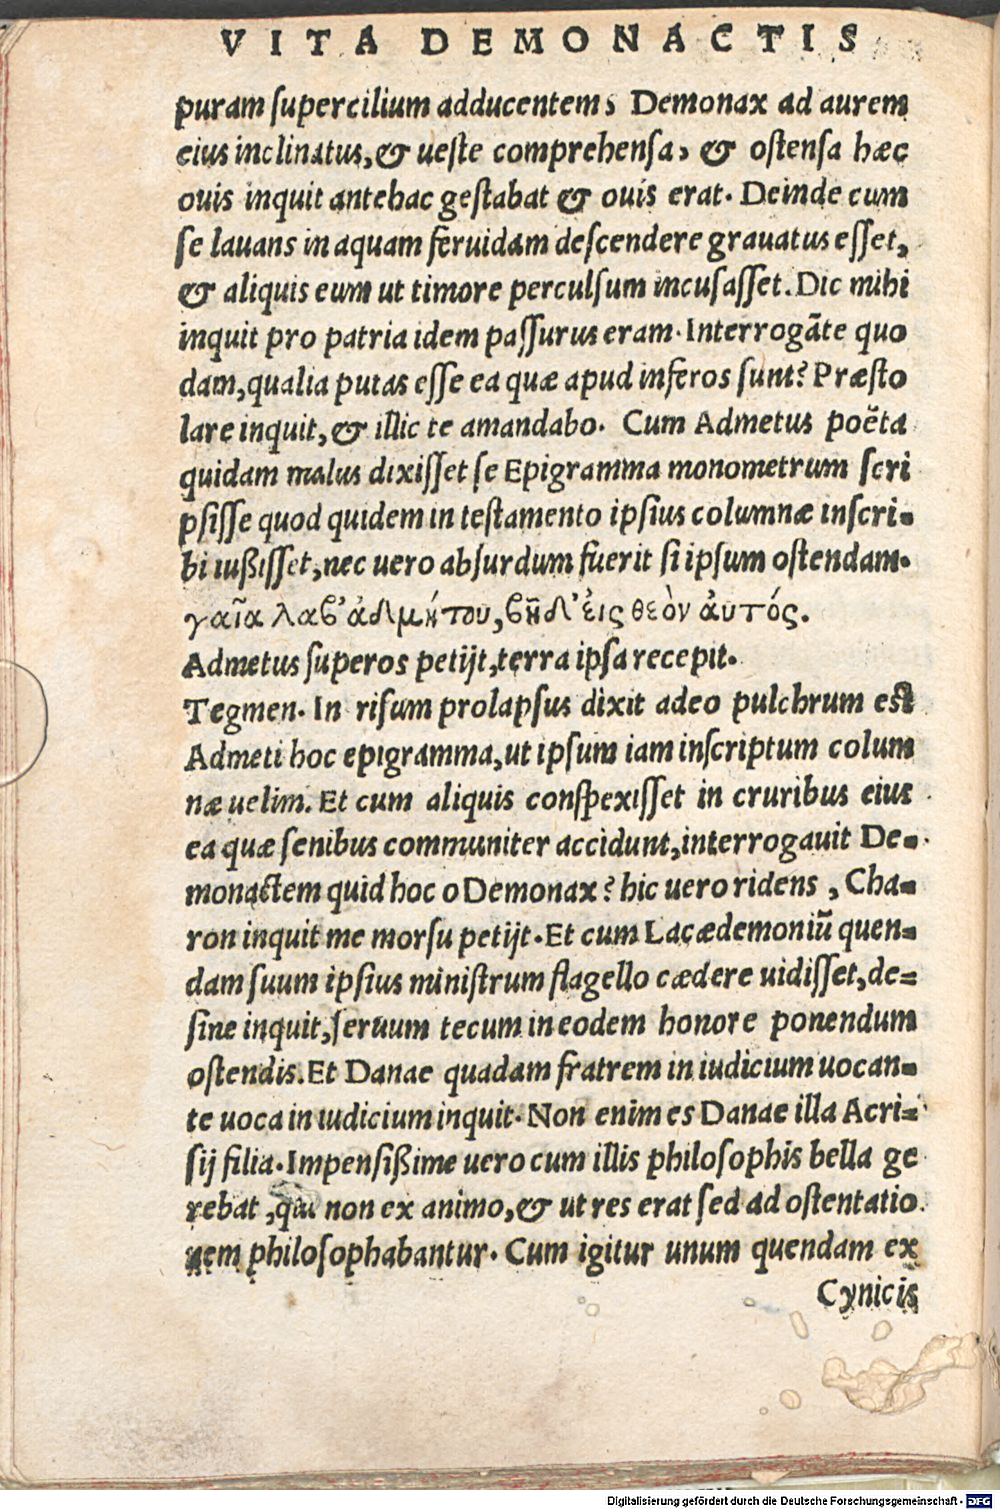 VITA DEMONACTIS
puram supercilium adducentem, Demonax ad aurem
eius inclinatus, & ueste comprehensa, & ostensa hæc
ouis inquit antehac gestabat & ouis erat. Deinde cum
se lauans in aquam feruidam descendere grauatus esset,
& aliquis eum ut timore perculsum incusasset. Dic mihi
inquit pro patria idem passurus eram. Interrogāte quo
dam, qualia putas esse ea quæ apud inferos sunt? Præsto
lare inquit, & illic te amandabo. Cum Admetus poëta
quidam malus dixisset se Epigramma monometrum scri
psisse quod quidem in testamento ipsius columnæ inscri-
bi iußisset, nec uero absurdum fuerit si ipsum ostendam.
γαῖα λαβ' ἀδμήτου, βῆ δ' εἰς θεὸν ἀυτός.
Admetus superos petijt, terra ipsa recepit.
Tegmen. In risum prolapsus dixit adeo pulchrum est
Admeti hoc epigramma, ut ipsum iam inscriptum colum
næ uelim. Et cum aliquis conspexisset in cruribus eius
ea quæ senibus communiter accidunt, interrogauit De-
monactem quid hoc o Demonax? hic uero ridens, Cha-
ron inquit me morsu petijt. Et cum Lacædemoniū quen-
dam suum ipsius ministrum flagello cædere uidisset, de-
sine inquit, seruum tecum in eodem honore ponendum
ostendis. Et Danae quadam fratrem in iudicium uocan-
te uoca in iudicium inquit. Non enim es Danae illa Acri-
sij filia. Impensißime uero cum illis philosophis bella ge
rebat, qui non ex animo, & ut res erat sed ad ostentatio
nem philosophabantur. Cum igitur unum quendam ex
Cynicis
Digitalisierung gefördert durch die Deutsche Forschungsgemeinschaft - DFG